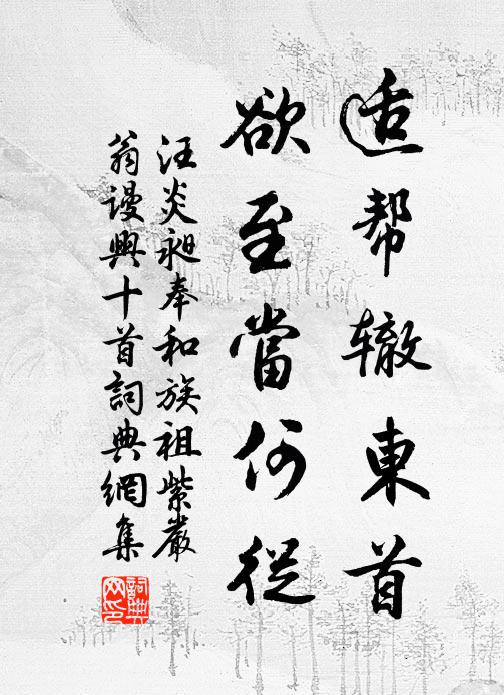 适帮辙東首
欲至當何從
汪炎昶奉和族祖紫嚴
翁谩興十首詞典網集
詞典网印